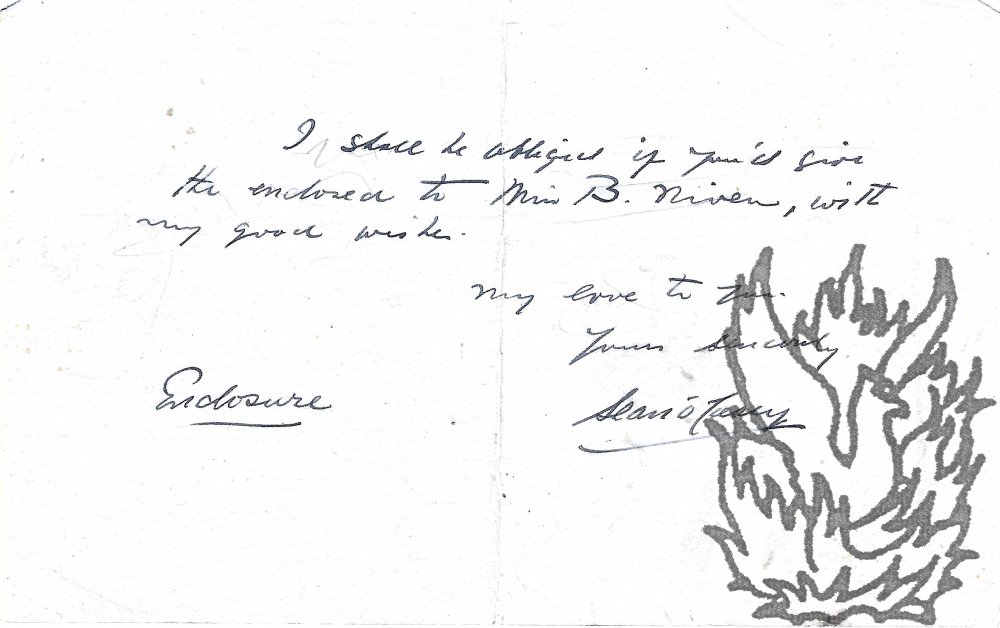 I shall be obliged if you'd give
the enclosed to Miss B. Niven, with
my good wishes.
My love to you.
Yours sincerely
Enclosure
Sean O'Casey